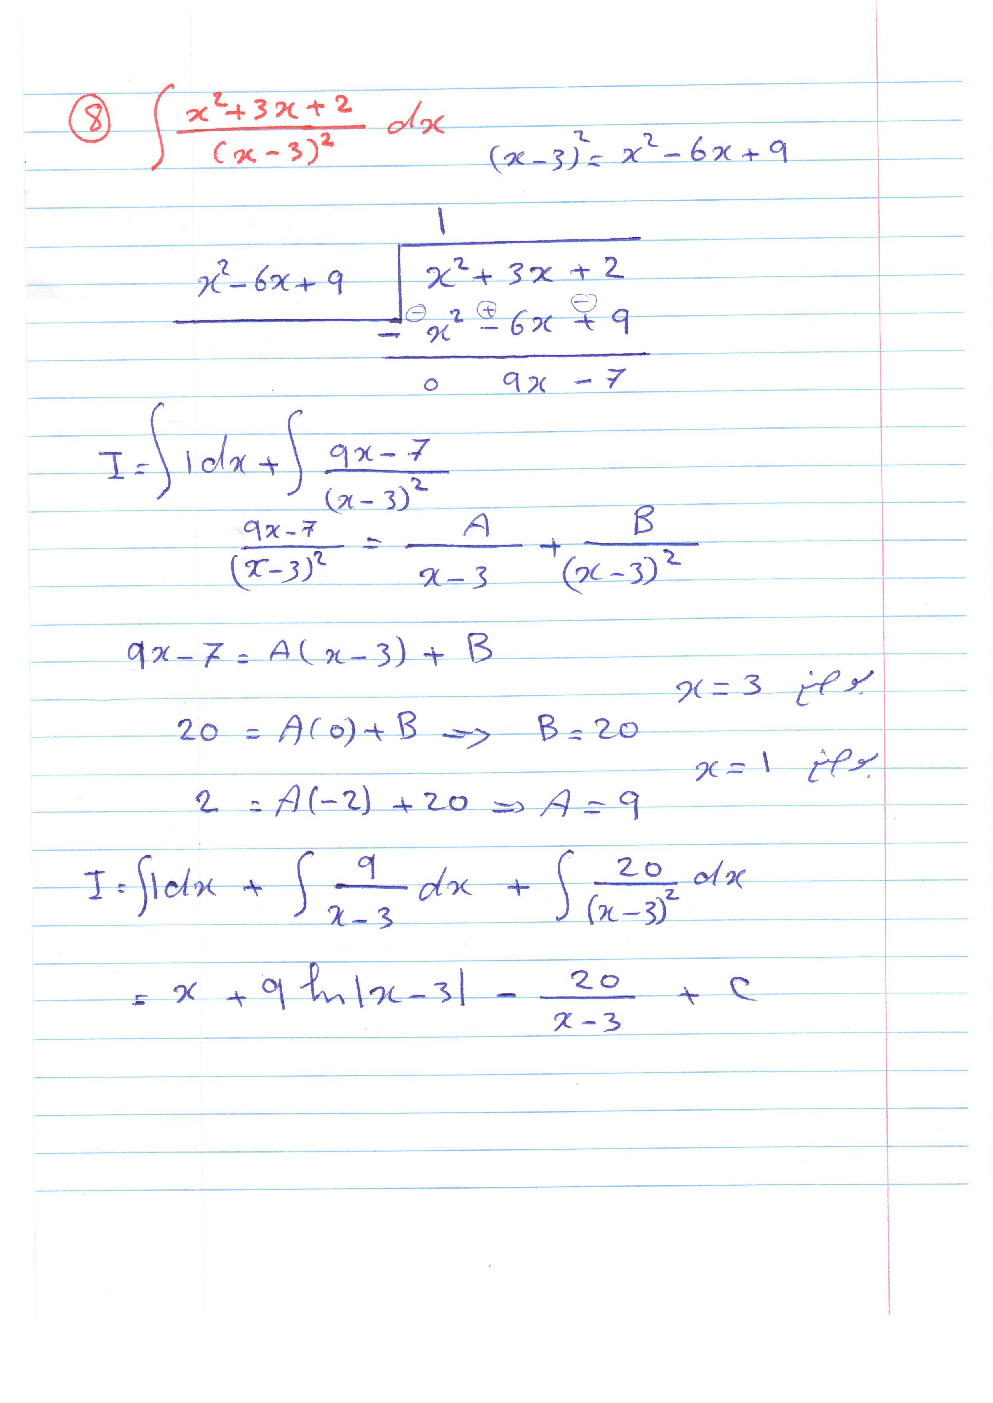 ⑧ ∫ x²+3x+2 / (x-3)² dx
(x-3)² = x²-6x+9
1
x²-6x+9 | x²+3x+2
- ⊖x² ⊕-6x ⊖+9
0 9x-7
I = ∫1dx + ∫ 9x-7 / (x-3)²
9x-7 / (x-3)² = A / x-3 + B / (x-3)²
9x-7 = A(x-3) + B
x=3 بوضع
20 = A(0)+B ⇒ B=20
x=1 بوضع
2 = A(-2)+20 ⇒ A=9
I = ∫1dx + ∫ 9 / x-3 dx + ∫ 20 / (x-3)² dx
= x + 9 ln|x-3| - 20 / x-3 + C